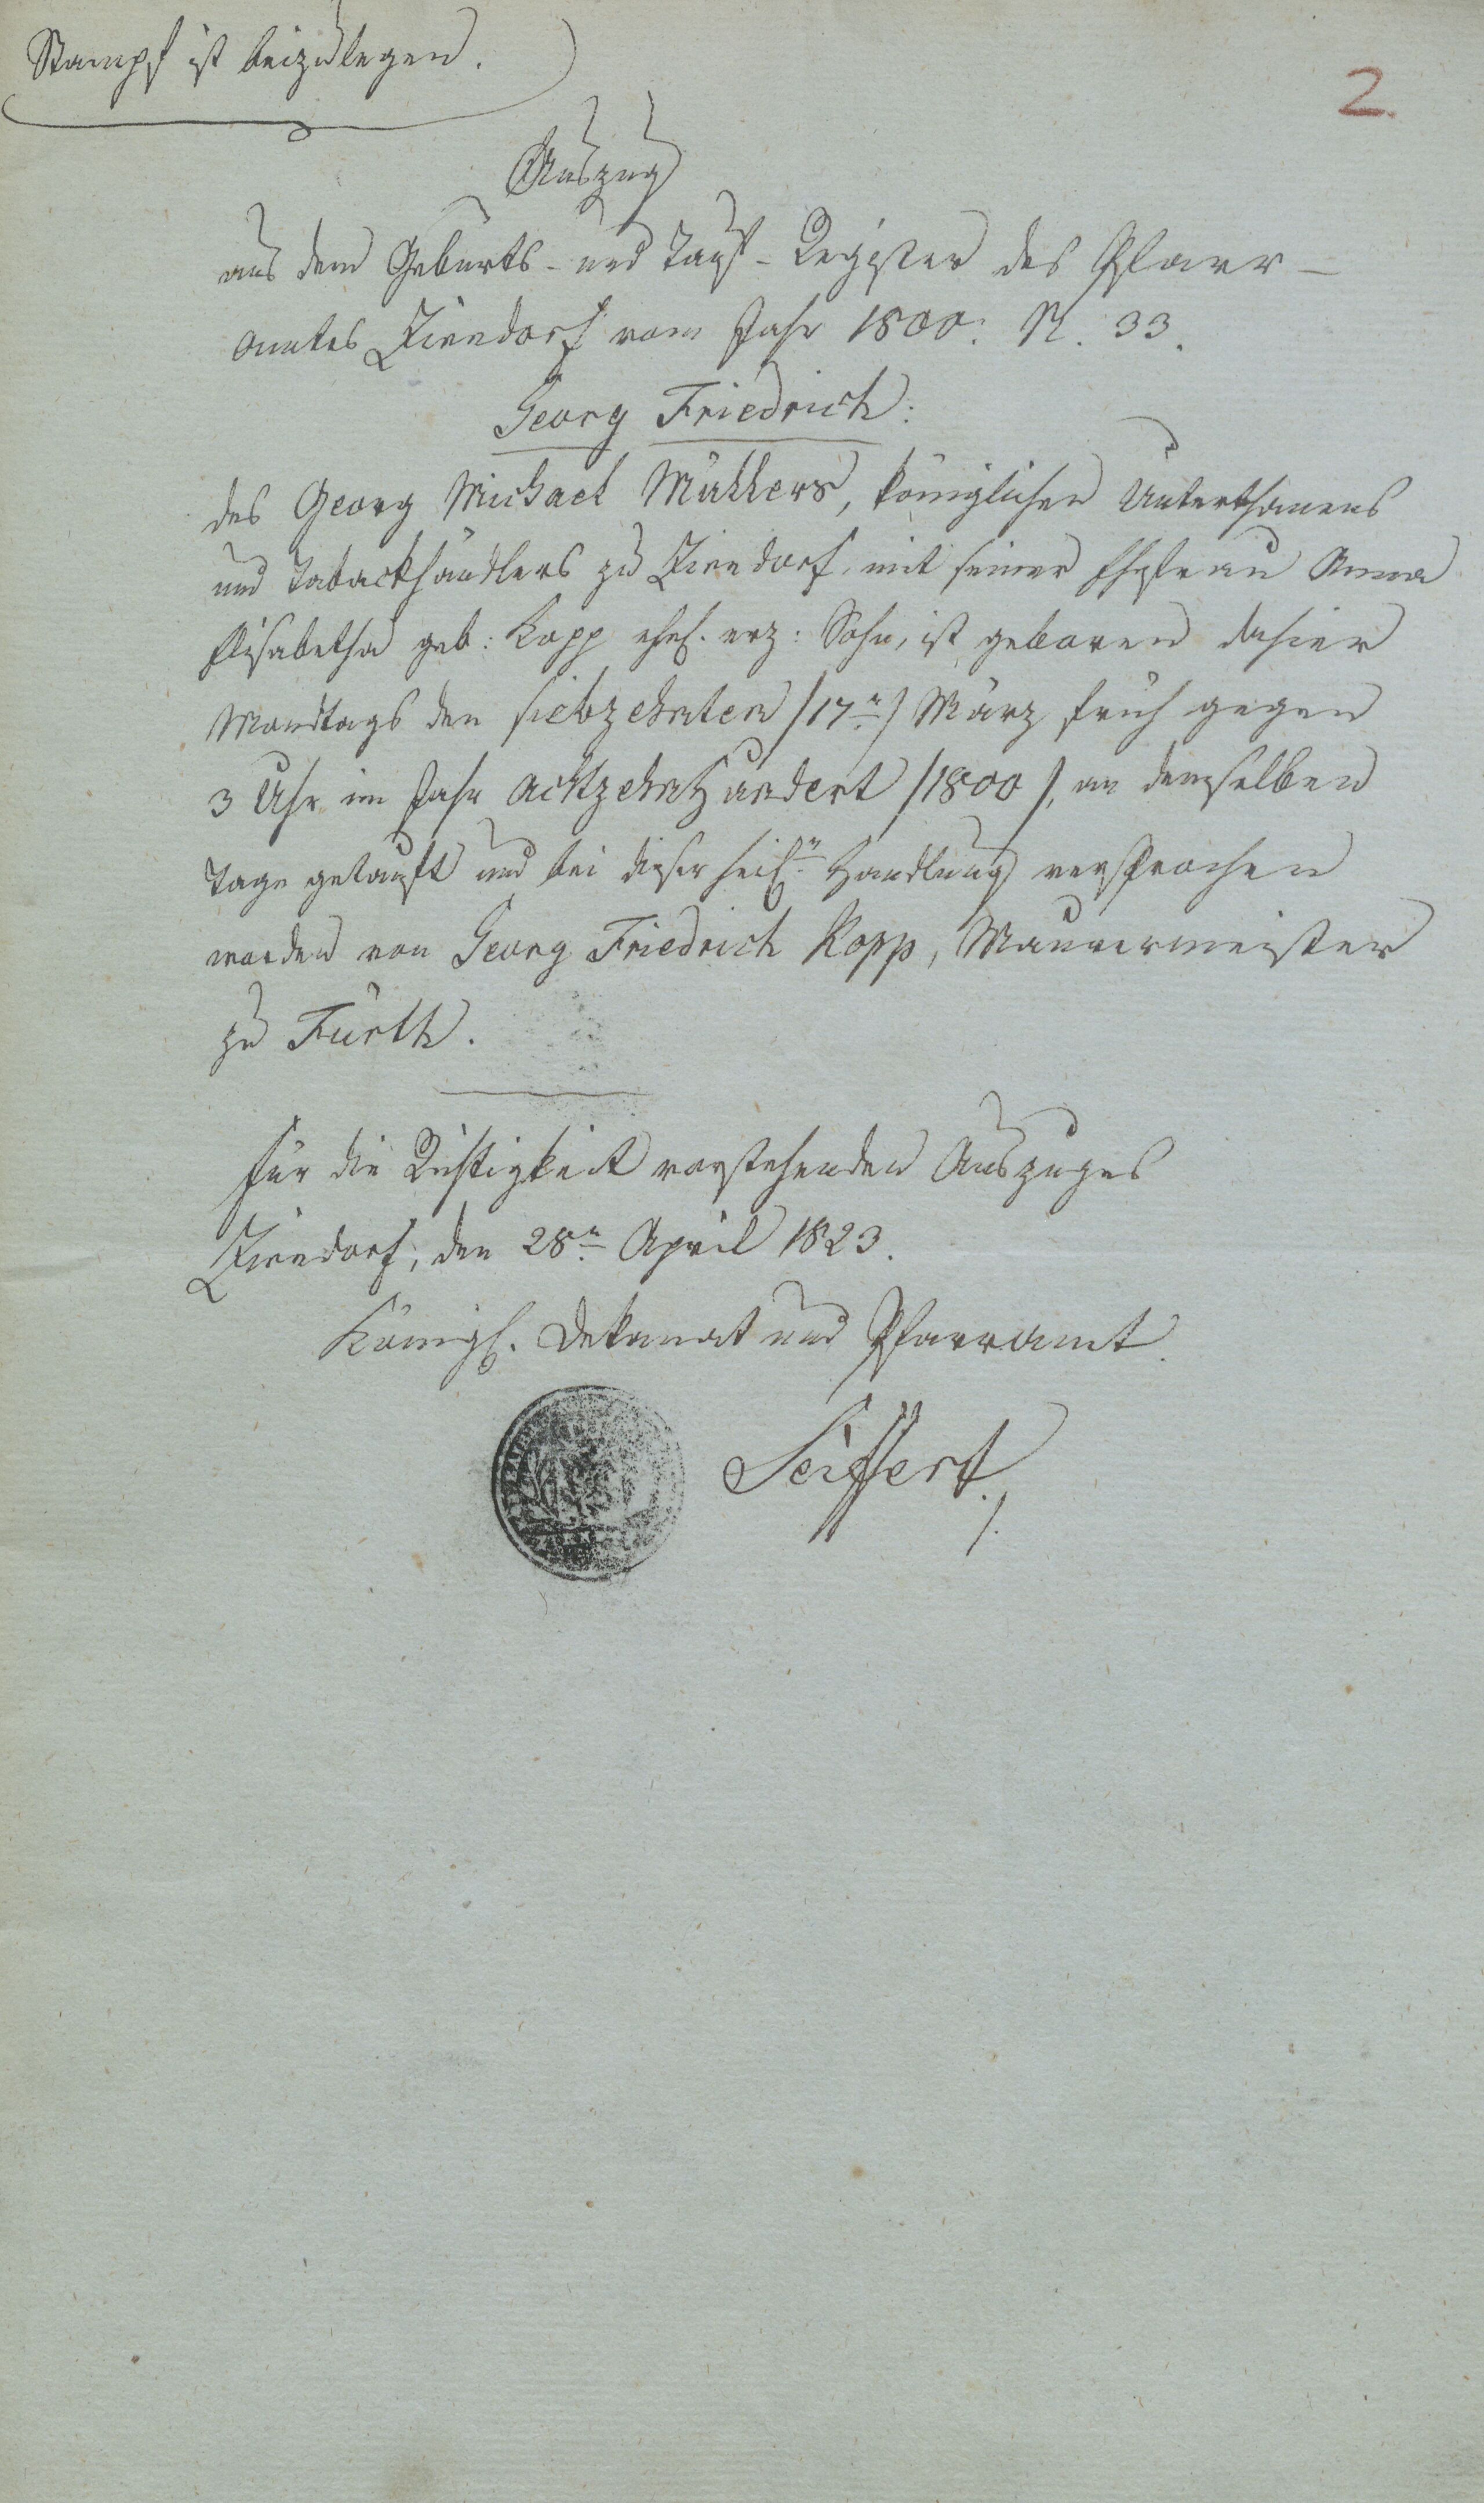 Stempf ist beizulegen.
2.
Auszug
aus dem Geburts- und Tauf-Register des Pfarr-
amtes Zirndorf vom Jahr 1800. N. 33.
Georg Friedrich:
des Georg Michael Müllers, königlichen Unterthanens
und Tabackhändlers zu Zirndorf, mit seiner Ehefrau Anna
Elisabetha geb: Kopp ehel. erz: Sohn, ist geboren dahier
Mondtags den siebzehnten /17n/ März früh gegen
3 Uhr im Jahr achtzehnhundert /1800/, an demselben
Tage getauft und bei dieser heiln Handlung versprochen
worden von Georg Friedrich Kopp, Maurermeister
zu Fürth.
Für die Richtigkeit vorstehenden Auszuges
Zirndorf, den 28n April 1823.
Königl. Dekanat und Pfarramt.
Seiffert